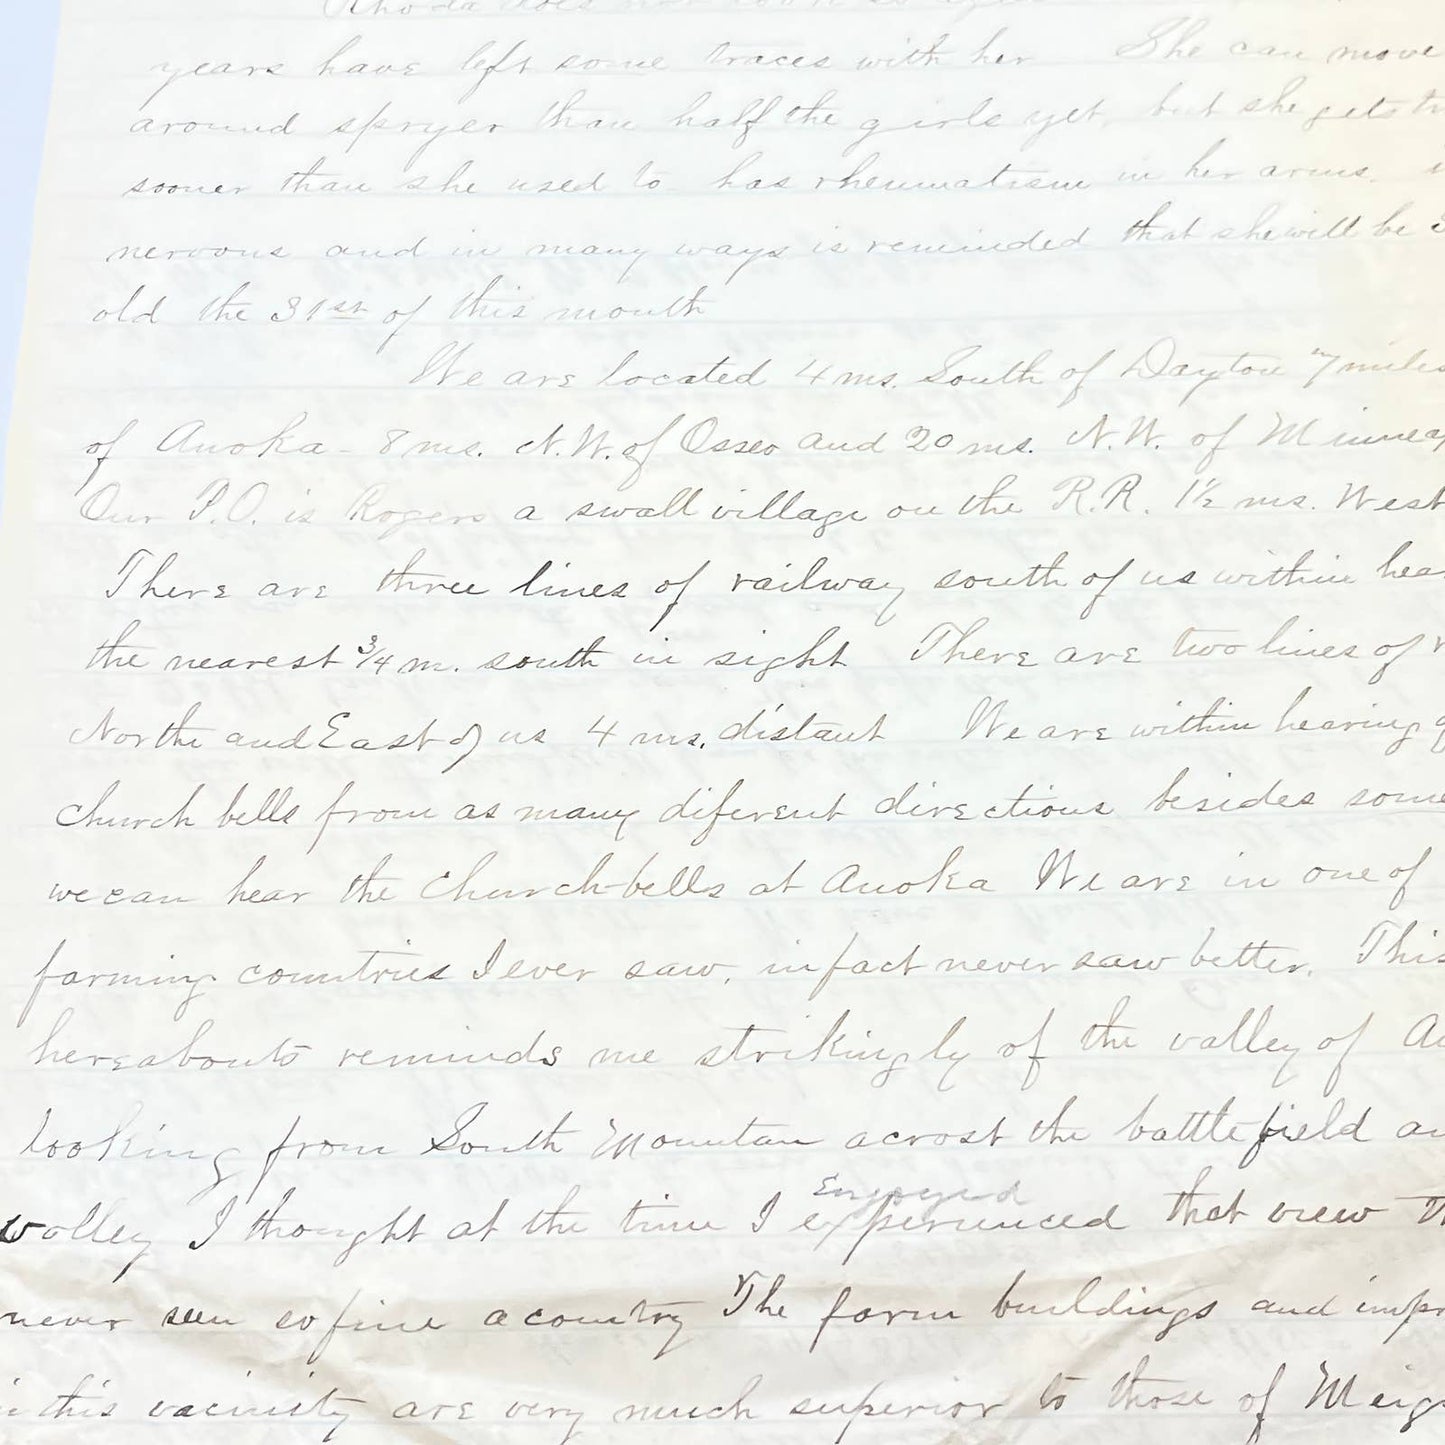 Rhoda does not look so
years have left some traces with her She can move
around spryer than half the girls yet, but she gets
sooner than she used to has rheumatism in her arms.
nervous and in many ways is reminded that she will be
old the 31st of this month
We are located 4 ms. South of Dayton 7 miles
of Anoka - 8 ms. N.W. of Osseo and 20 ms. N.W. of Minneap
Our P.O. is Rogers a small village on the R.R. 1½ ms. West
There are three lines of railway south of us within hea
the nearest ¾ m. south in sight There are two lines of
North and East of us 4 ms. distant We are within hearing
church bells from as many diferent directions besides some
we can hear the church-bells at Anoka We are in one of
farming countries I ever saw, in fact never saw better. This
hereabouts reminds me strikingly of the valley of
looking from South Mountan acrost the battlefield
valley I thought at the time I experienced that view
Enjoyed
never seen so fine a country The farm buildings and impr
in this vacinity are very much superior to those of Meig